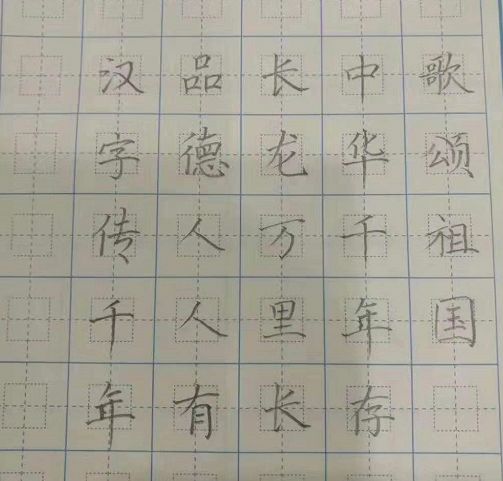 歌颂祖国
中华千年存
长龙万里长
品德人人有
汉字传千年